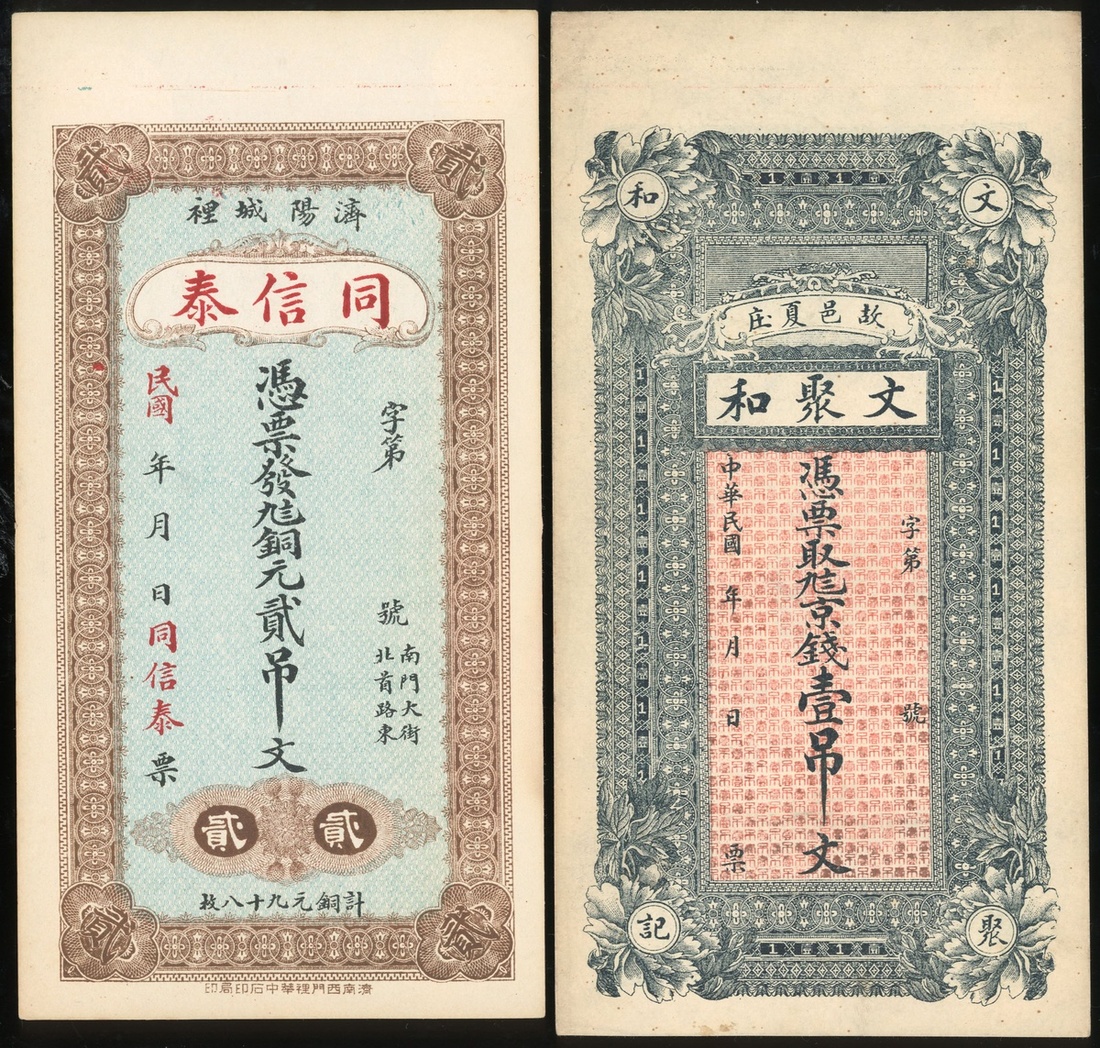 貳
貳
濟陽城裡
同信泰
字第 號
南門大街
北首路東
憑票發銅元貳吊文
民國 年 月 日同信泰票
貳 貳
計銅元九十八枚
貳
貳
濟南西門裡華中石印局印
文
和
1 1
故邑夏庄
文聚和
字第 號
憑票取京錢壹吊文
中華民國 年 月 日 票
聚
記
1 1